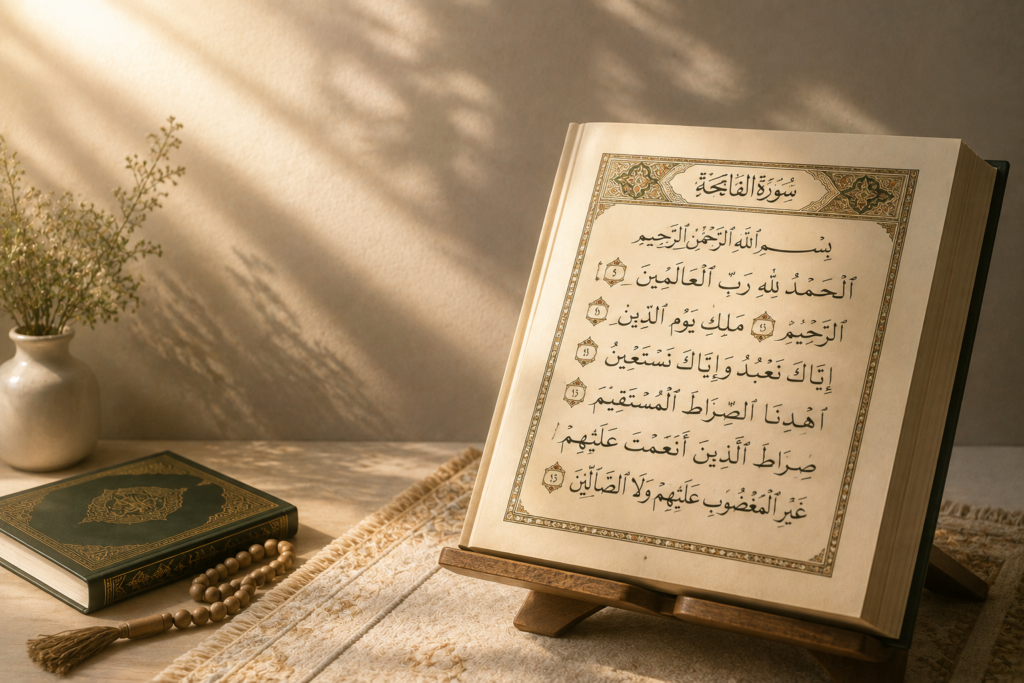 سُورَةُ الفَاتِحَةُ
بِسْمِ اللَّهِ الرَّحْمَٰنِ الرَّحِيمِ
ٱلْحَمْدُ لِلَّهِ رَبِّ ٱلْعَالَمِينَ
ٱلرَّحِيْمُ مَلِكِ يَوْمِ الدِّينِ
إِيَّاكَ نَعْبُدُ وَإِيَّاكَ نَسْتَعِينُ
ٱهْدِنَا ٱلصِّرَاطَ ٱلْمُسْتَقِيْمَ
صِرَاطَ ٱلَّذِينَ أَنْعَمْتَ عَلَيْهِمْ
غَيْرِ ٱلْمَغْضُوبِ عَلَيْهِمْ وَلَا ٱلضَّالِّينَ